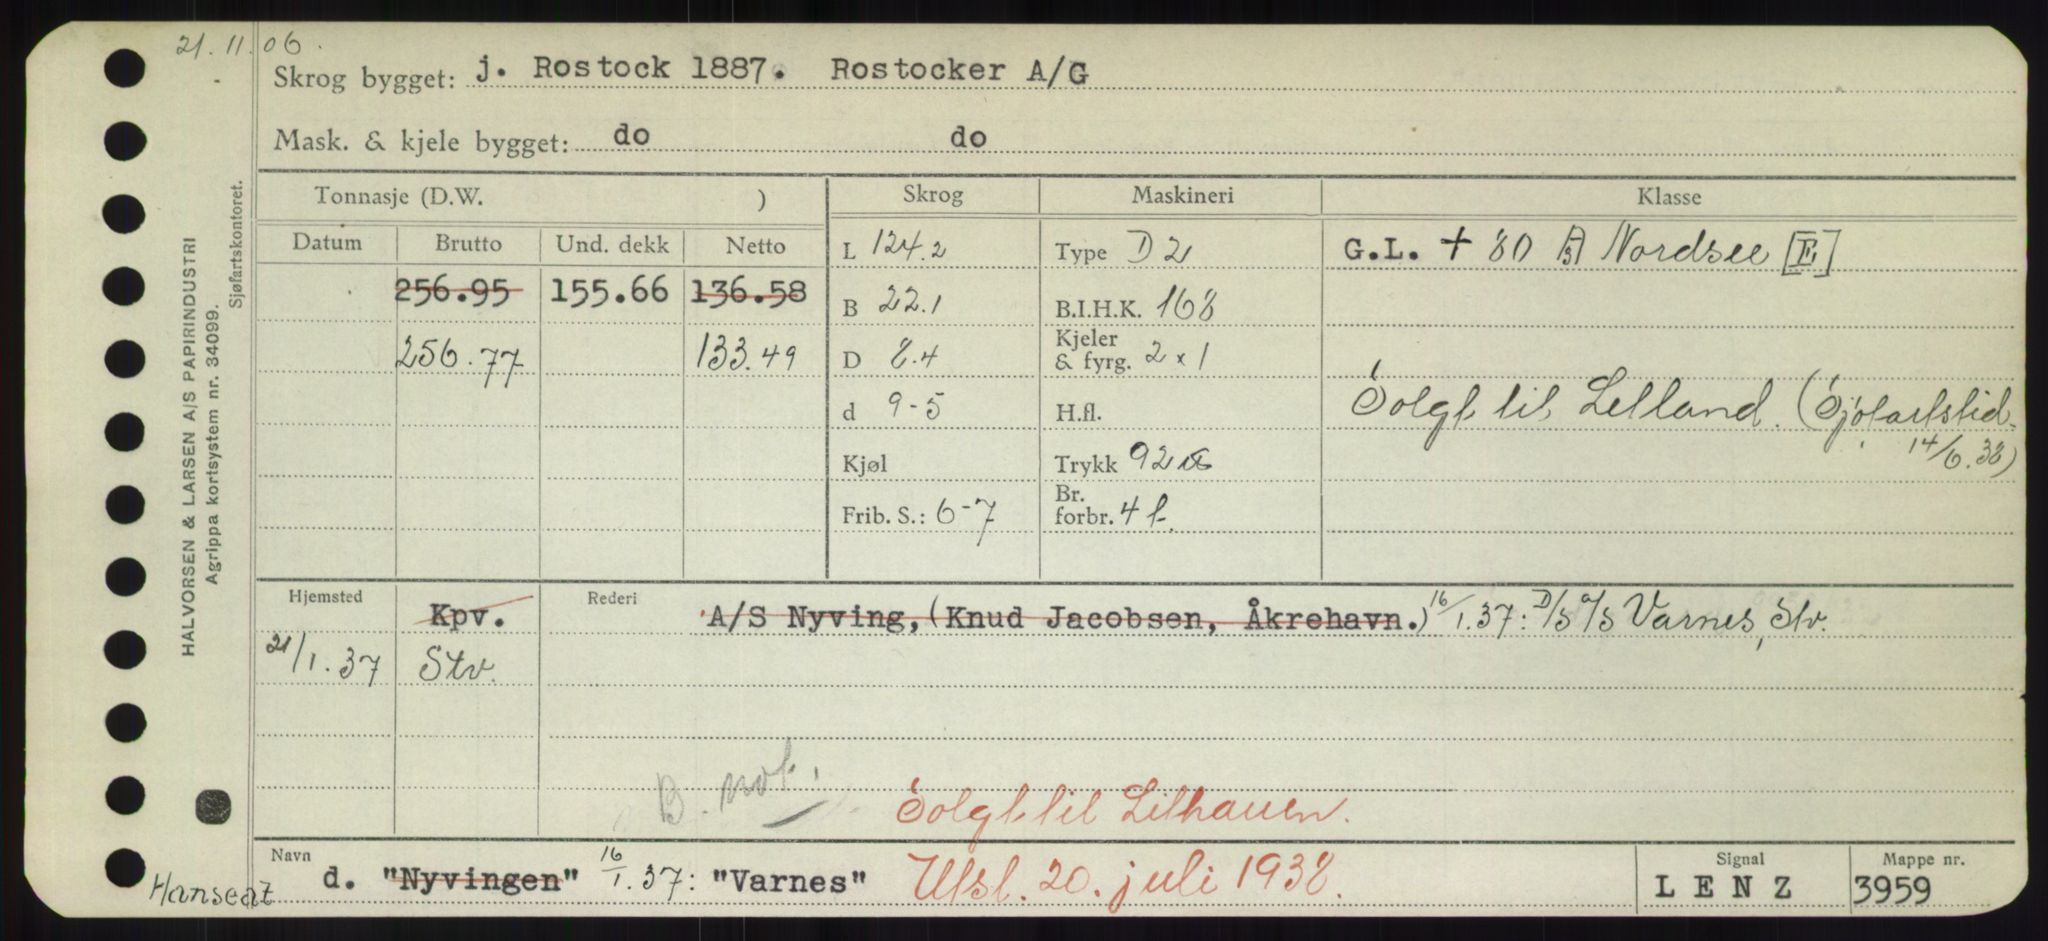 21.11.06.
Skrog bygget: j. Rostock 1887. Rostocker A/G
Mask. & kjele bygget: do do
HALVORSEN & LARSEN A/S PAPIRINDUSTRI
Agrippa kortsystem nr. 34099.
Sjøfartskontoret.
Tonnasje (D.W. ) Skrog Maskineri Klasse
Datum Brutto Und. dekk Netto L 124.2 Type D 2 G.L. + 80 Nordsee [E]
256.95 155.66 136.58 B 22.1 B.I.H.K. 168
256.77 133.49 D 8.4 Kjeler & fyrg. 2 x 1
d 9-5 H.fl. Solgt til Letland. (Sjøfartstid. 14/6.38)
Kjøl Trykk 92
Frib. S.: 6-7 Br. forbr. 4 t.
Hjemsted Kpv. Rederi A/S Nyving, (Knud Jacobsen, Åkrehavn.) 16/1.37: D/S a/s Varnes, Stv.
21/1.37 Stv.
B. not.
Solgt til Lithauen.
Navn d. "Nyvingen" 16/1.37: "Varnes" Utsl. 20. juli 1938. Signal LENZ Mappe nr. 3959
Hanseat